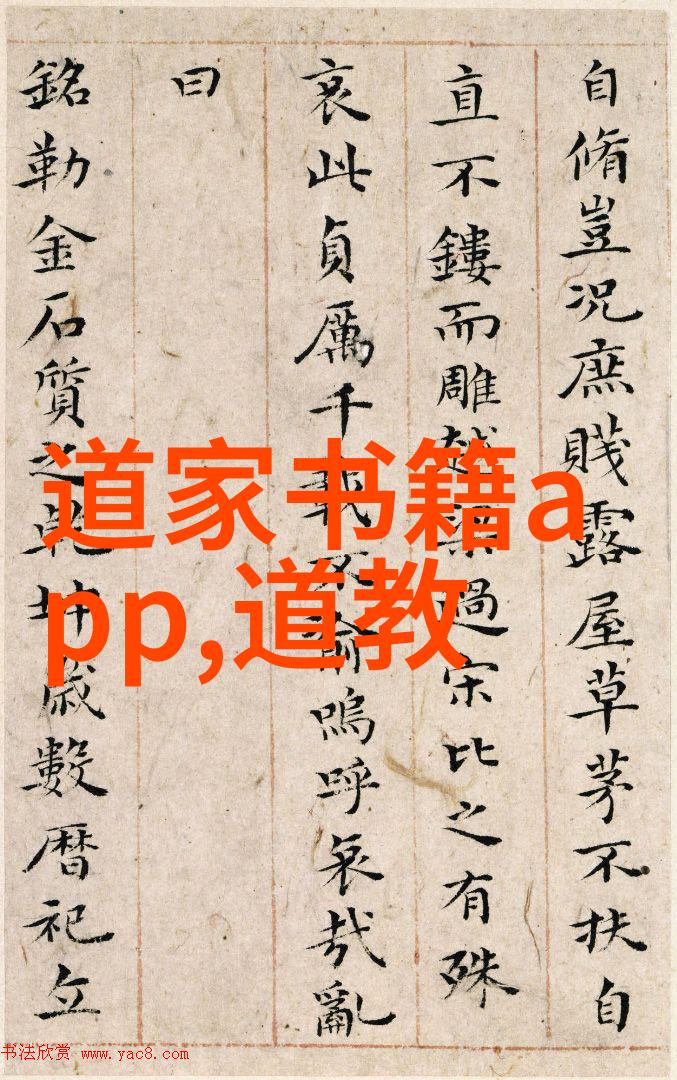 自脩豈况庶賤露屋草茅不扶自
直不鏤而雕越梁過宋比之有殊
哀此貞厲千載不渝嗚呼哀哉亂
曰
銘勒金石質之乾坤歲數曆祀立
道家书籍a
pp,道教
书法欣赏 www.yac8.com